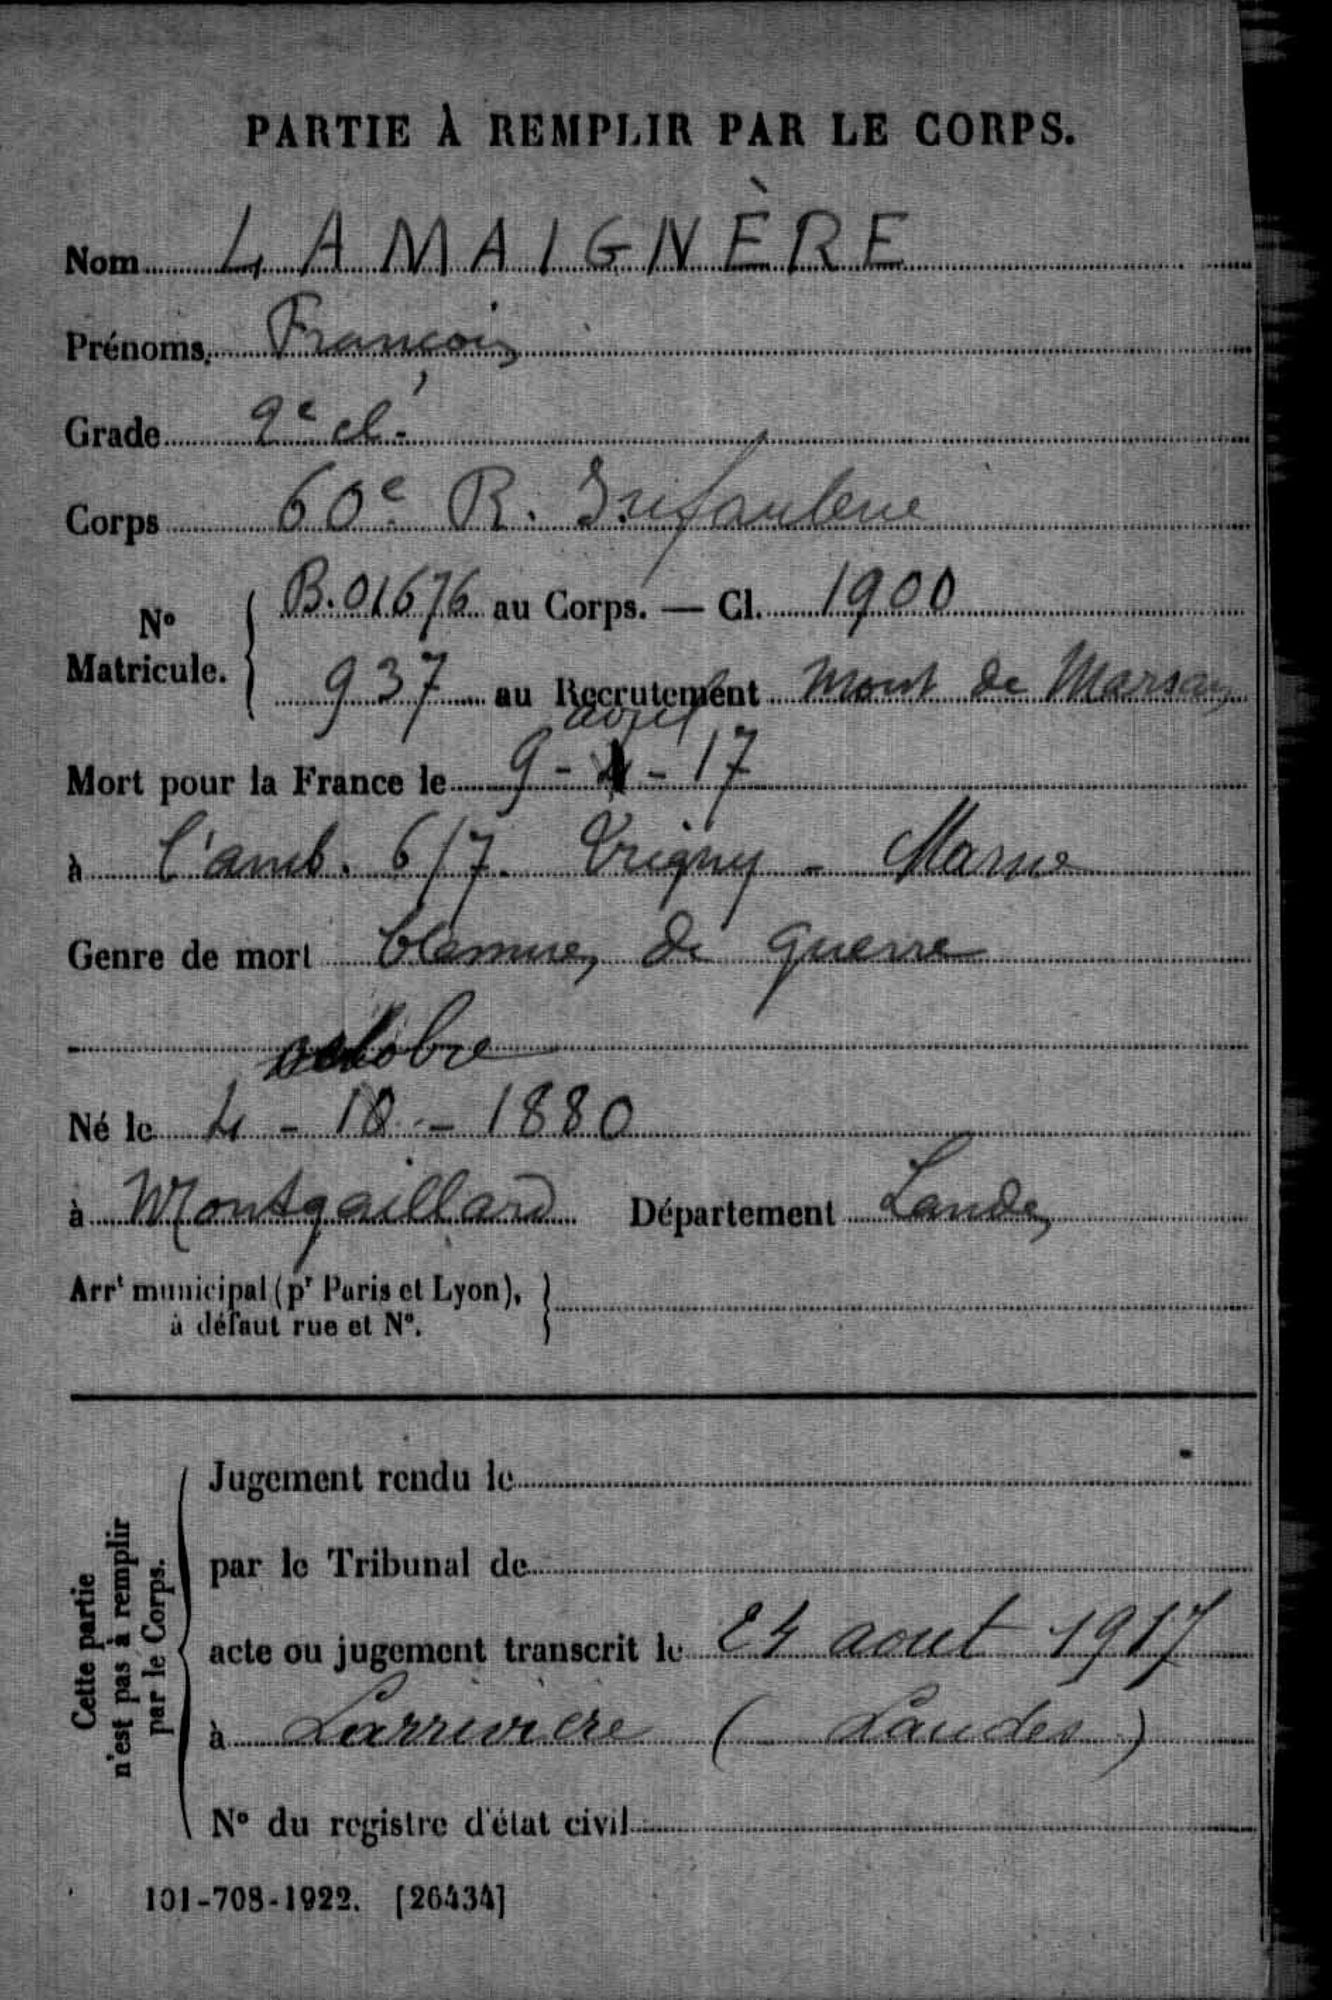 PARTIE À REMPLIR PAR LE CORPS.
Nom LAMAIGNÈRE
Prénoms. François
Grade 2e cl.
Corps 60e R. Infanterie
No Matricule. B.01676 au Corps. — Cl. 1900
937 au Recrutement Mont de Marsan
avril
Mort pour la France le 9-4-17
à l'amb. 6/7. Vrigny - Marne
Genre de mort blessures de guerre
octobre
Né le 4-10-1880
à Montgaillard Département Landes
Arrt municipal (pr Paris et Lyon),
à défaut rue et No.
Cette partie
n'est pas à remplir
par le Corps.
Jugement rendu le
par le Tribunal de
acte ou jugement transcrit le 24 aout 1917
à Larrivière (Landes)
No du registre d'état civil
101-708-1922. [26434]